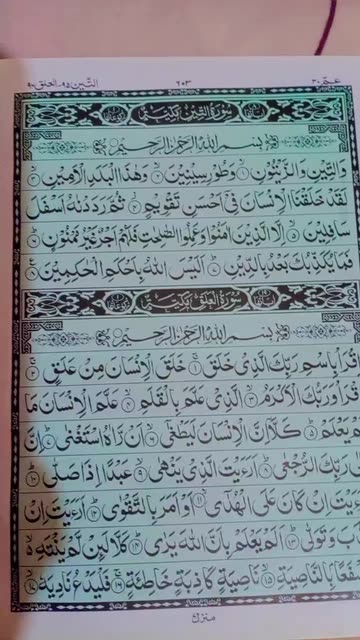 التين ٩٥ العلق ٩٦ ٦٠٣ عم ٣٠
سُوْرَةُ التِّيْنِ مَكِّيَّةٌ
بِسْمِ اللهِ الرَّحْمٰنِ الرَّحِيْمِ
وَالتِّيْنِ وَالزَّيْتُوْنِ ۝١ وَطُوْرِ سِيْنِيْنَ ۝٢ وَهٰذَا الْبَلَدِ الْاَمِيْنِ ۝٣
لَقَدْ خَلَقْنَا الْاِنْسَانَ فِيْٓ اَحْسَنِ تَقْوِيْمٍ ۝٤ ثُمَّ رَدَدْنٰهُ اَسْفَلَ
سَافِلِيْنَ ۝٥ اِلَّا الَّذِيْنَ اٰمَنُوْا وَعَمِلُوا الصّٰلِحٰتِ فَلَهُمْ اَجْرٌ غَيْرُ مَمْنُوْنٍ ۝٦
فَمَا يُكَذِّبُكَ بَعْدُ بِالدِّيْنِ ۝٧ اَلَيْسَ اللهُ بِاَحْكَمِ الْحٰكِمِيْنَ ۝٨
سُوْرَةُ الْعَلَقِ مَكِّيَّةٌ
بِسْمِ اللهِ الرَّحْمٰنِ الرَّحِيْمِ
اِقْرَاْ بِاسْمِ رَبِّكَ الَّذِيْ خَلَقَ ۝١ خَلَقَ الْاِنْسَانَ مِنْ عَلَقٍ ۝٢
اِقْرَاْ وَرَبُّكَ الْاَكْرَمُ ۝٣ الَّذِيْ عَلَّمَ بِالْقَلَمِ ۝٤ عَلَّمَ الْاِنْسَانَ مَا
لَمْ يَعْلَمْ ۝٥ كَلَّآ اِنَّ الْاِنْسَانَ لَيَطْغٰىٓ ۝٦ اَنْ رَّاٰهُ اسْتَغْنٰى ۝٧ اِنَّ
اِلٰى رَبِّكَ الرُّجْعٰى ۝٨ اَرَءَيْتَ الَّذِيْ يَنْهٰى ۝٩ عَبْدًا اِذَا صَلّٰى ۝١٠
اَرَءَيْتَ اِنْ كَانَ عَلَى الْهُدٰىٓ ۝١١ اَوْ اَمَرَ بِالتَّقْوٰى ۝١٢ اَرَءَيْتَ اِنْ
كَذَّبَ وَتَوَلّٰى ۝١٣ اَلَمْ يَعْلَمْ بِاَنَّ اللهَ يَرٰى ۝١٤ كَلَّا لَئِنْ لَّمْ يَنْتَهِ
لَنَسْفَعًا بِالنَّاصِيَةِ ۝١٥ نَاصِيَةٍ كَاذِبَةٍ خَاطِئَةٍ ۝١٦ فَلْيَدْعُ نَادِيَهٗ ۝١٧